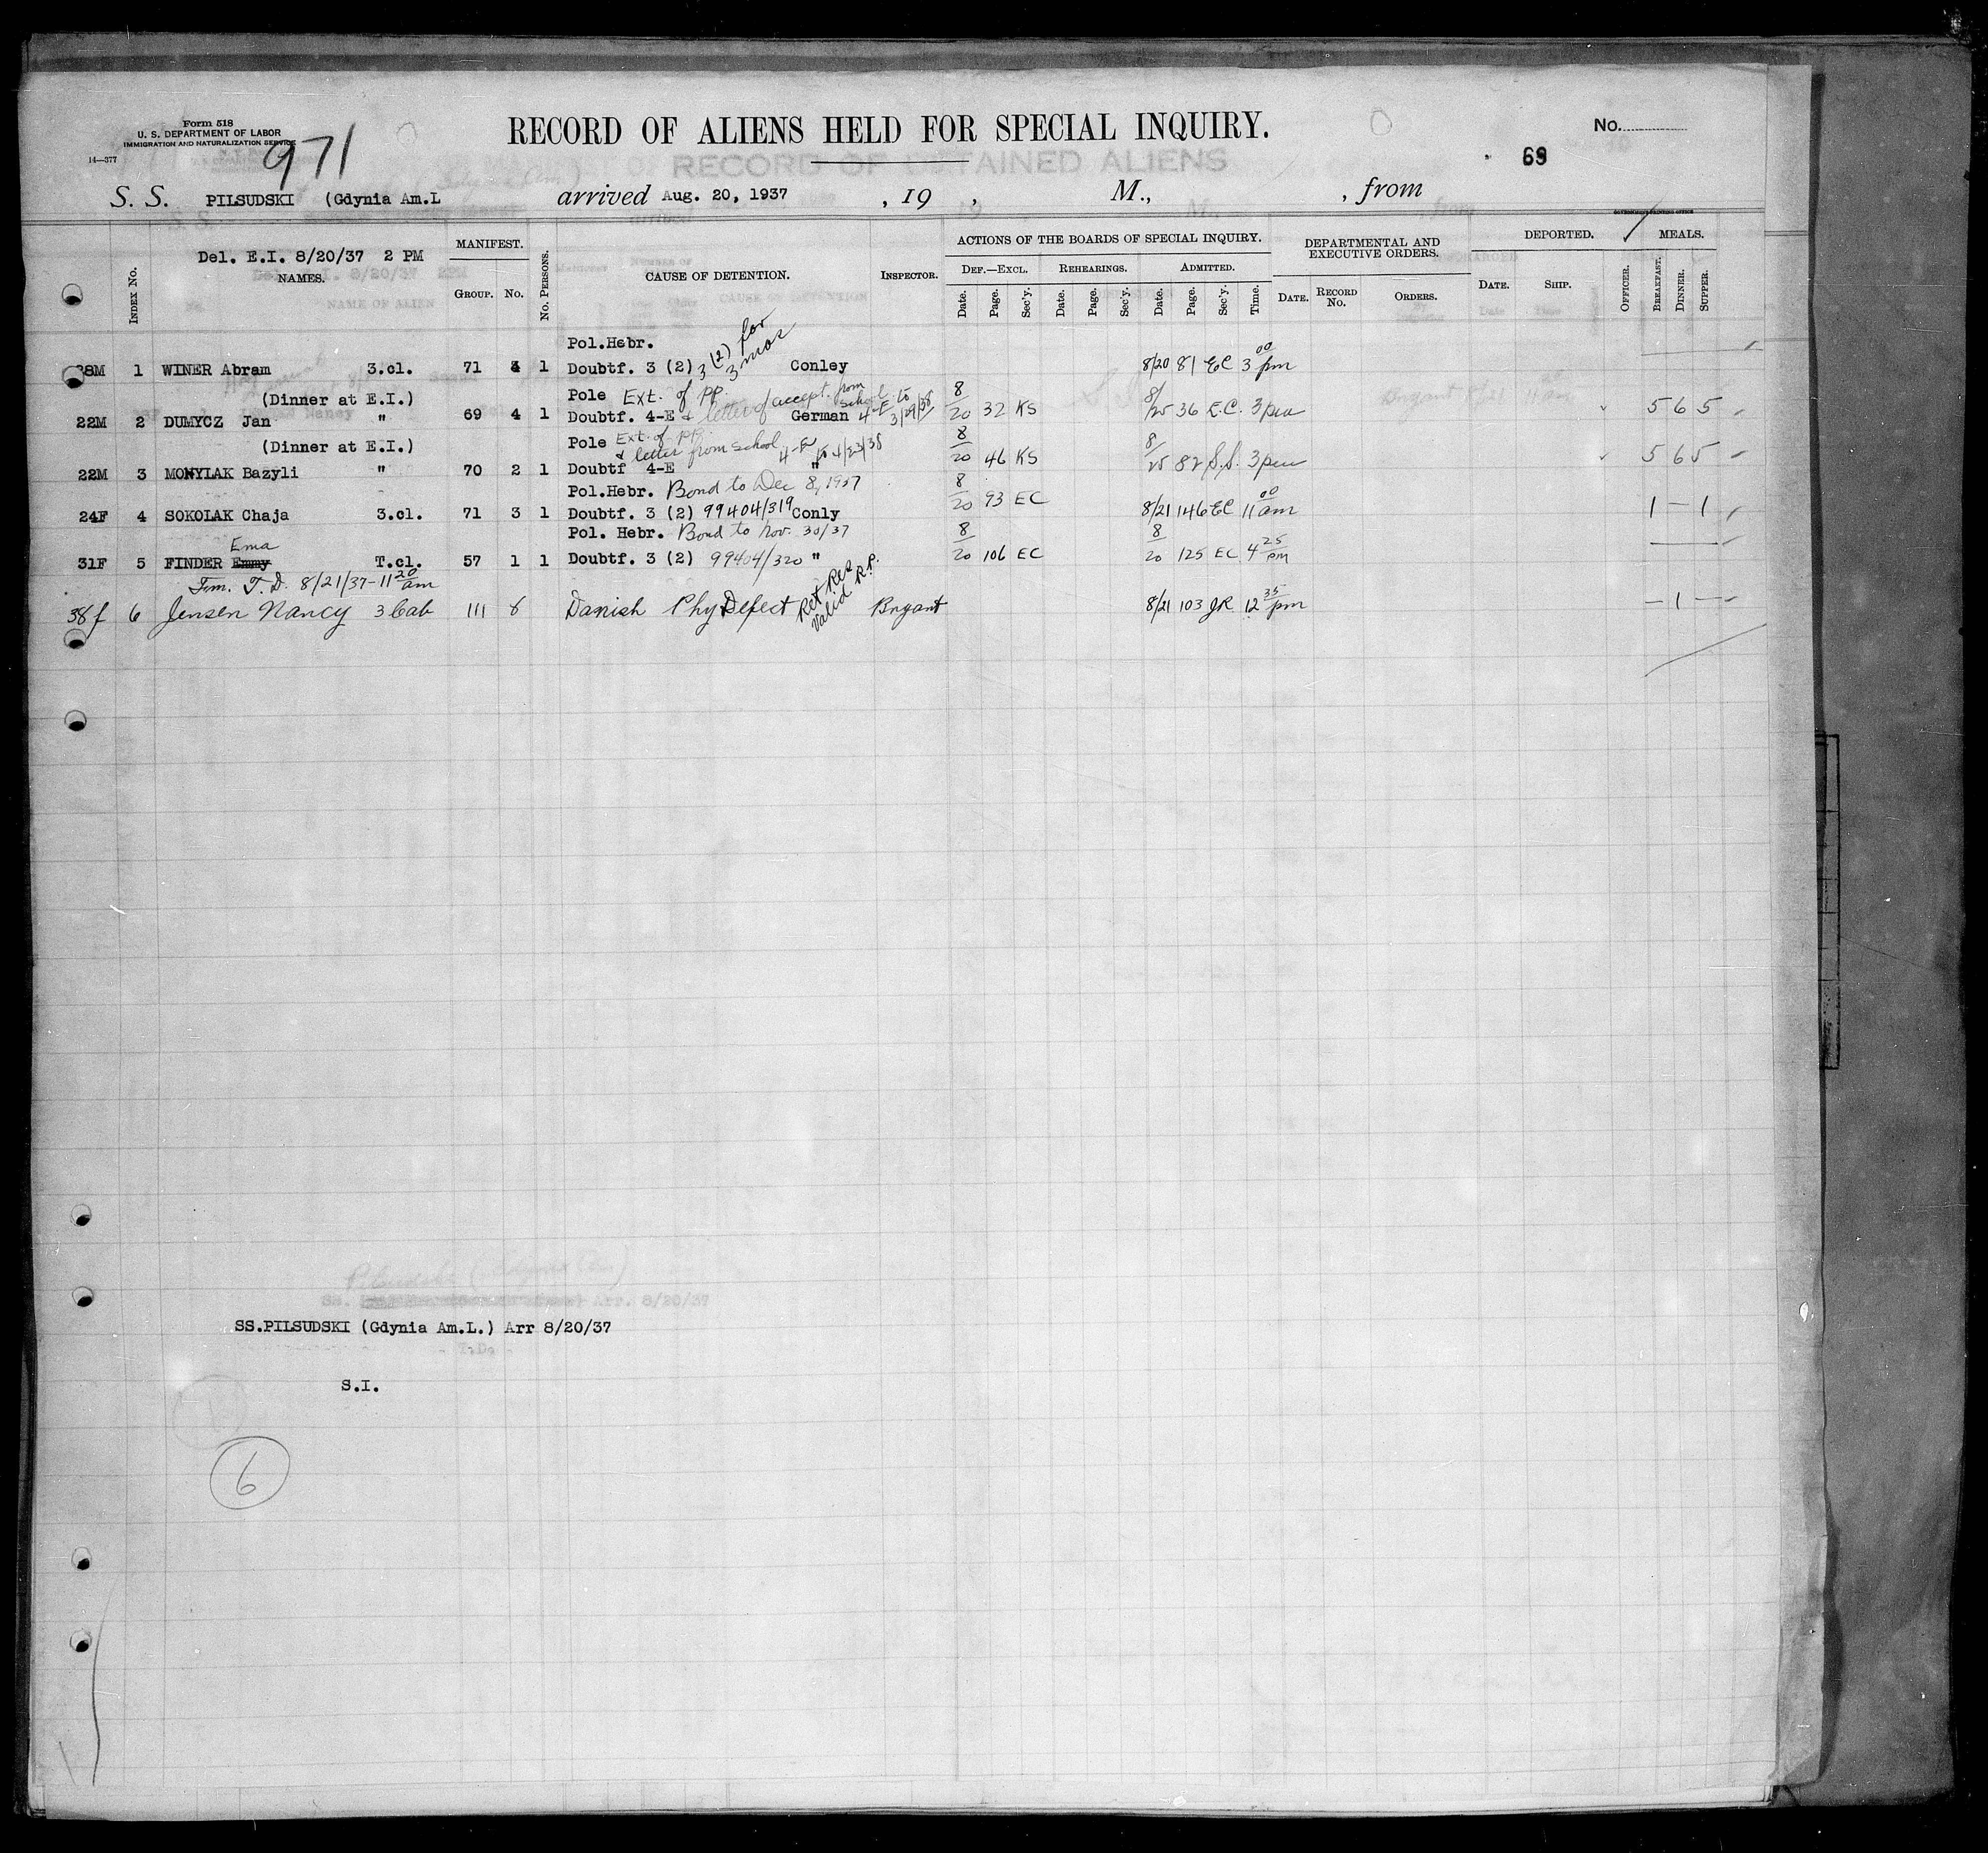 Form 518
U. S. DEPARTMENT OF LABOR
IMMIGRATION AND NATURALIZATION SERVICE
14—377
971
RECORD OF ALIENS HELD FOR SPECIAL INQUIRY.
RECORD OF DETAINED ALIENS
No.
69
S. S. PILSUDSKI (Gdynia Am.L arrived Aug. 20, 1937 , 19 , M., , from
Del. E.I. 8/20/37 2 PM
INDEX No. NAMES. MANIFEST. GROUP. No. No. PERSONS. CAUSE OF DETENTION. INSPECTOR. ACTIONS OF THE BOARDS OF SPECIAL INQUIRY. DEPARTMENTAL AND EXECUTIVE ORDERS. DEPORTED. MEALS.
DEF.—EXCL. REHEARINGS. ADMITTED.
Date. Page. Sec'y. Date. Page. Sec'y. Date. Page. Sec'y. Time. DATE. RECORD No. ORDERS. DATE. SHIP. OFFICER. BREAKFAST. DINNER. SUPPER.
Pol.Hebr.
1 WINER Abram 3.cl. 71 1 Doubtf. 3 (2) 3 (2) for 3 mos Conley 8/20 81 EC 3 00 pm
(Dinner at E.I.) Pole Ext. of PP.
22M 2 DUMYCZ Jan " 69 4 1 Doubtf. 4-E & letter of accept. from school 4-E to 3/29/38 German 8/20 32 KS 8/25 36 E.C. 3 pm 5 6 5
(Dinner at E.I.) Pole Ext. of PP. & letter from school 4-E to 4/23/38
22M 3 MONYLAK Bazyli " 70 2 1 Doubtf 4-E " 8/20 46 KS 8/25 82 S.S. 3 pm 5 6 5
Pol.Hebr. Bond to Dec 8, 1937
24F 4 SOKOLAK Chaja 3.cl. 71 3 1 Doubtf. 3 (2) 99404/319 Conly 8/20 93 EC 8/21 146 EC 11 00 am 1 — 1
Pol. Hebr. Bond to Nov. 30/37
Ema
31F 5 FINDER Emmy T.cl. 57 1 1 Doubtf. 3 (2) 99404/320 " 8/20 106 EC 8/20 125 EC 4 25 pm
Fm. T.D. 8/21/37 - 11 20 am
38f 6 Jensen Nancy 3 Cab 111 8 Danish Phy Defect Ret Res Valid R.P. Bryant 8/21 103 JR 12 35 pm — 1 —
SS.PILSUDSKI (Gdynia Am.L.) Arr 8/20/37
S.I.
6